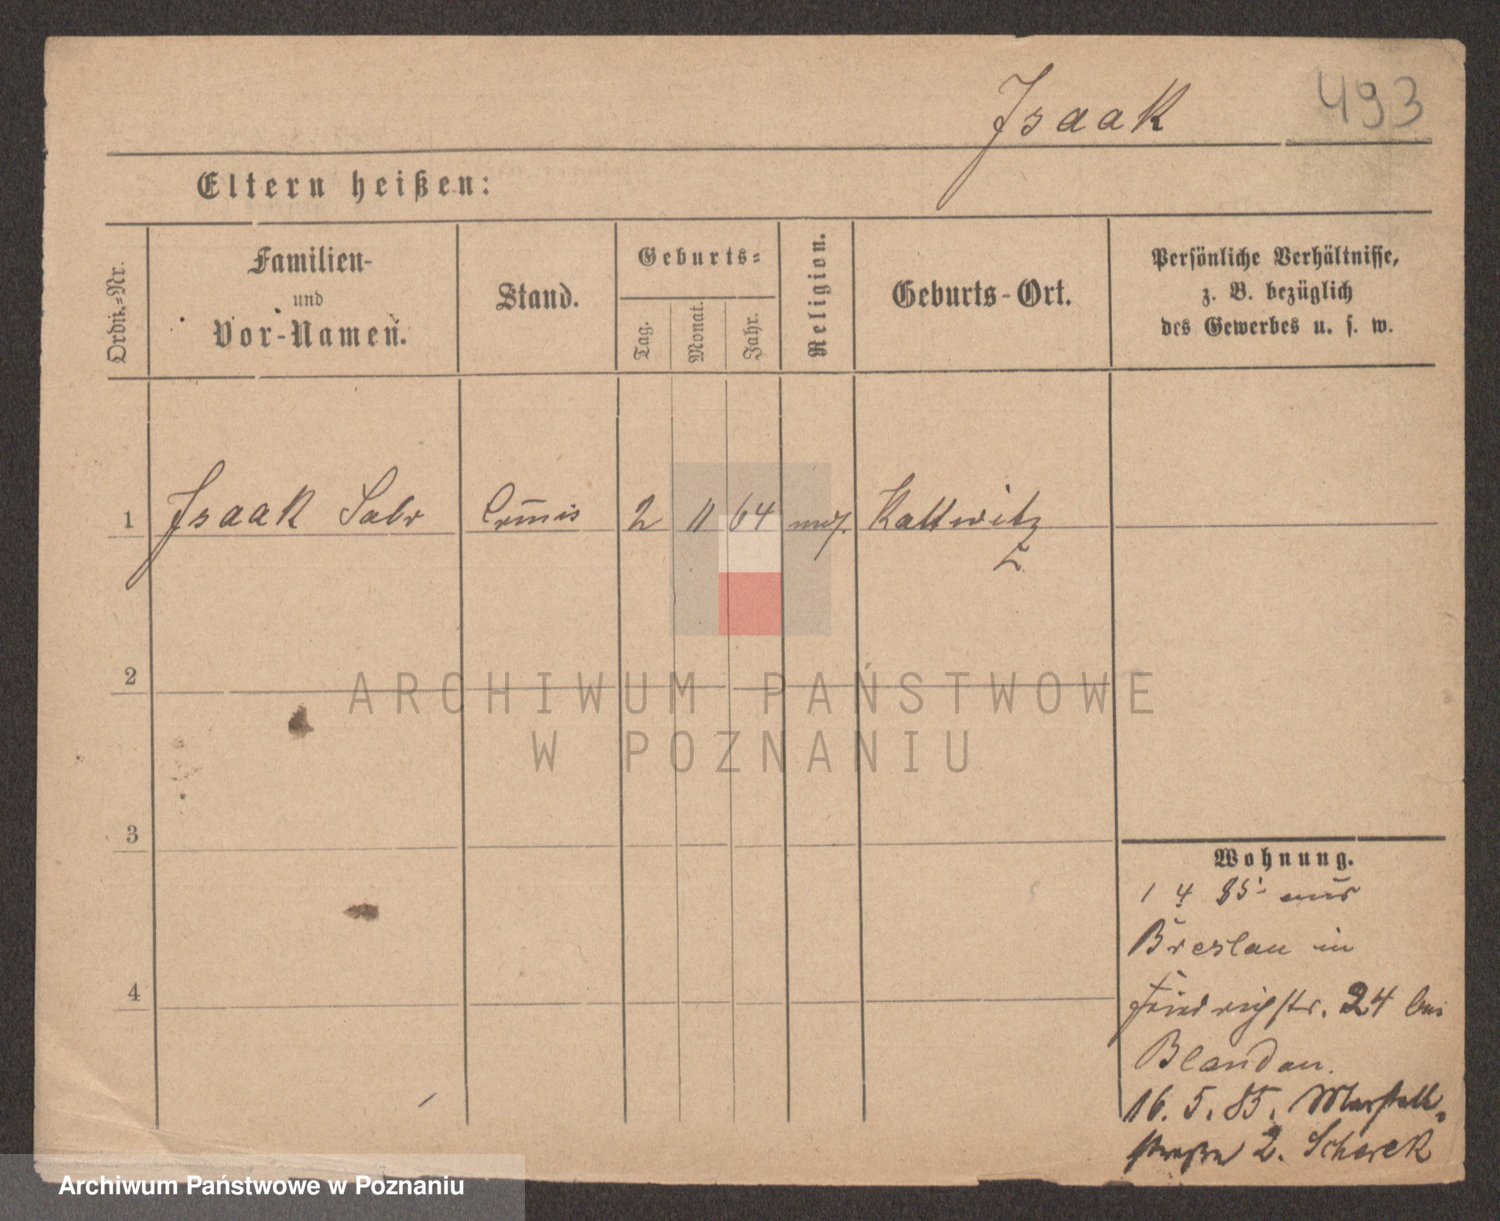 493
Isaak
Eltern heißen:
Ordn.-Nr.
Familien-
und
Vor-Namen.
Stand.
Geburts-
Tag.
Monat.
Jahr.
Religion.
Geburts-Ort.
Persönliche Verhältnisse,
z. B. bezüglich
des Gewerbes u. s. w.
1 Isaak Commis 2 11 64 mos. Kattwitz
2
ARCHIWUM PAŃSTWOWE
W POZNANIU
3
4
Wohnung.
1 4 85 aus
Breslau in
Friedrichstr. 24 bei
Blandau.
16. 5. 85. Marstall-
straße 2. Scherek
Archiwum Państwowe w Poznaniu